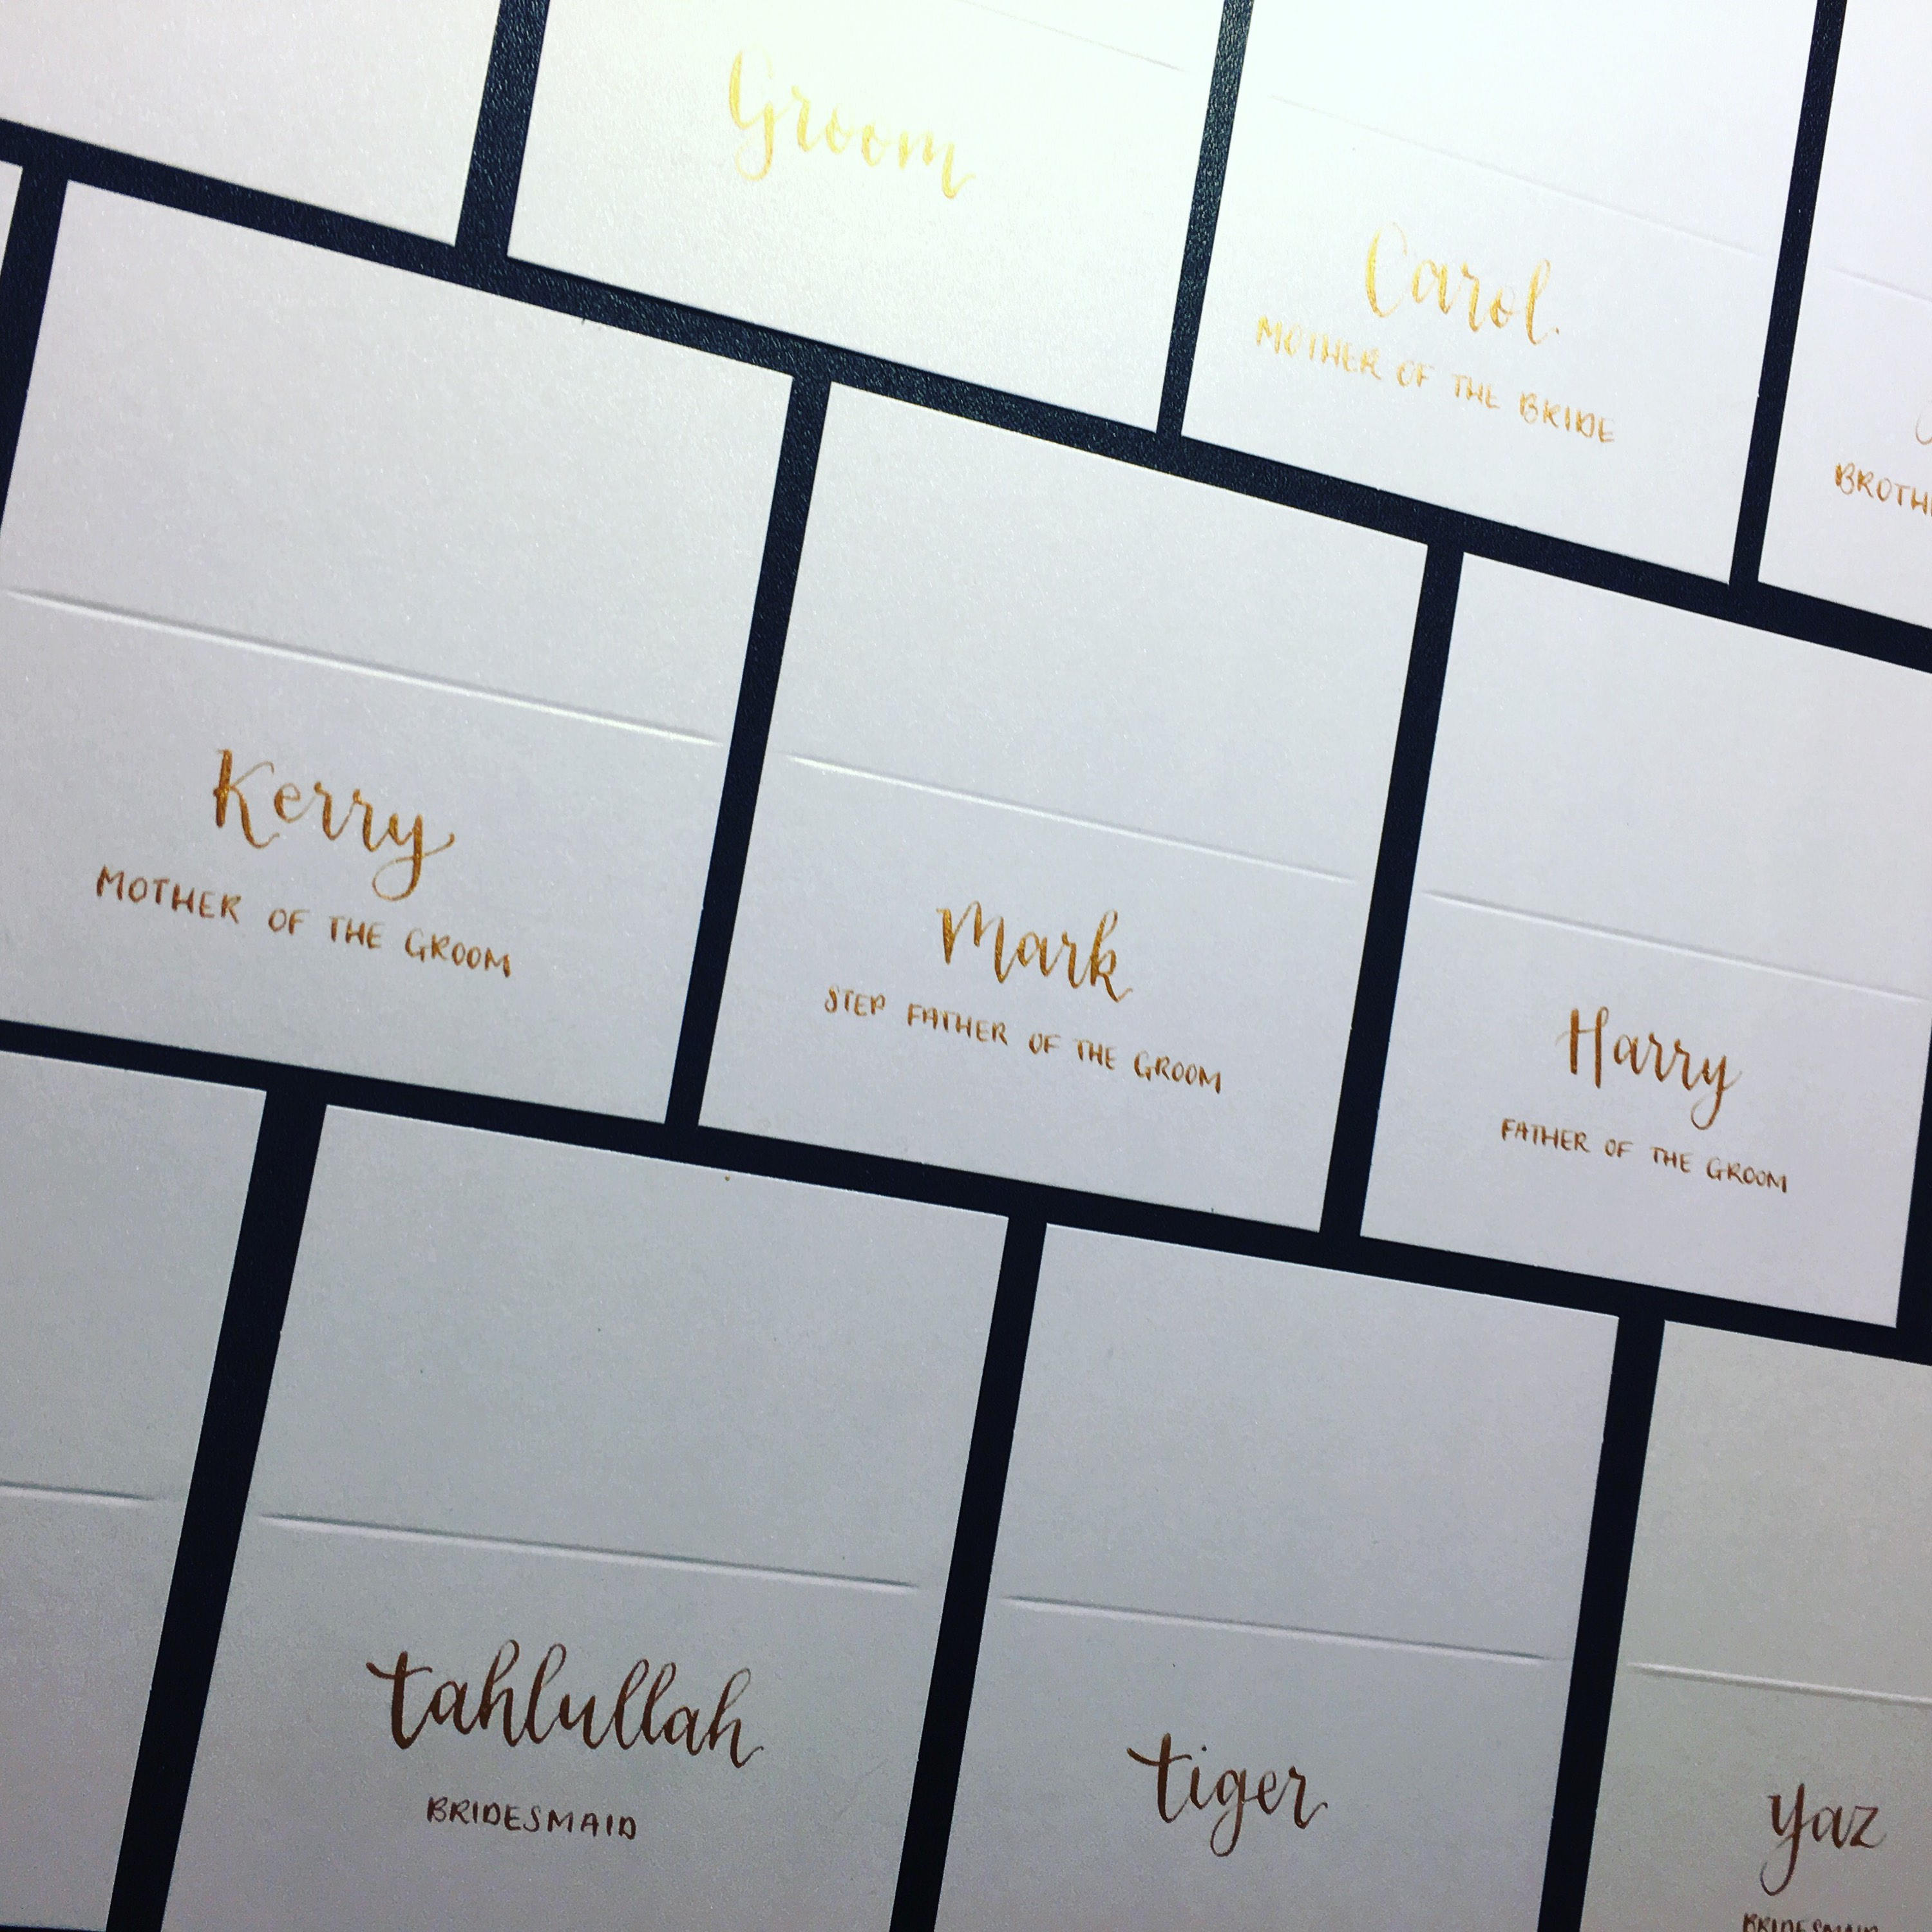 Groom
Carol
MOTHER OF THE BRIDE
Kerry
MOTHER OF THE GROOM
Mark
STEP FATHER OF THE GROOM
Harry
FATHER OF THE GROOM
tahlullah
BRIDESMAID
tiger
yaz
BRIDESMAID